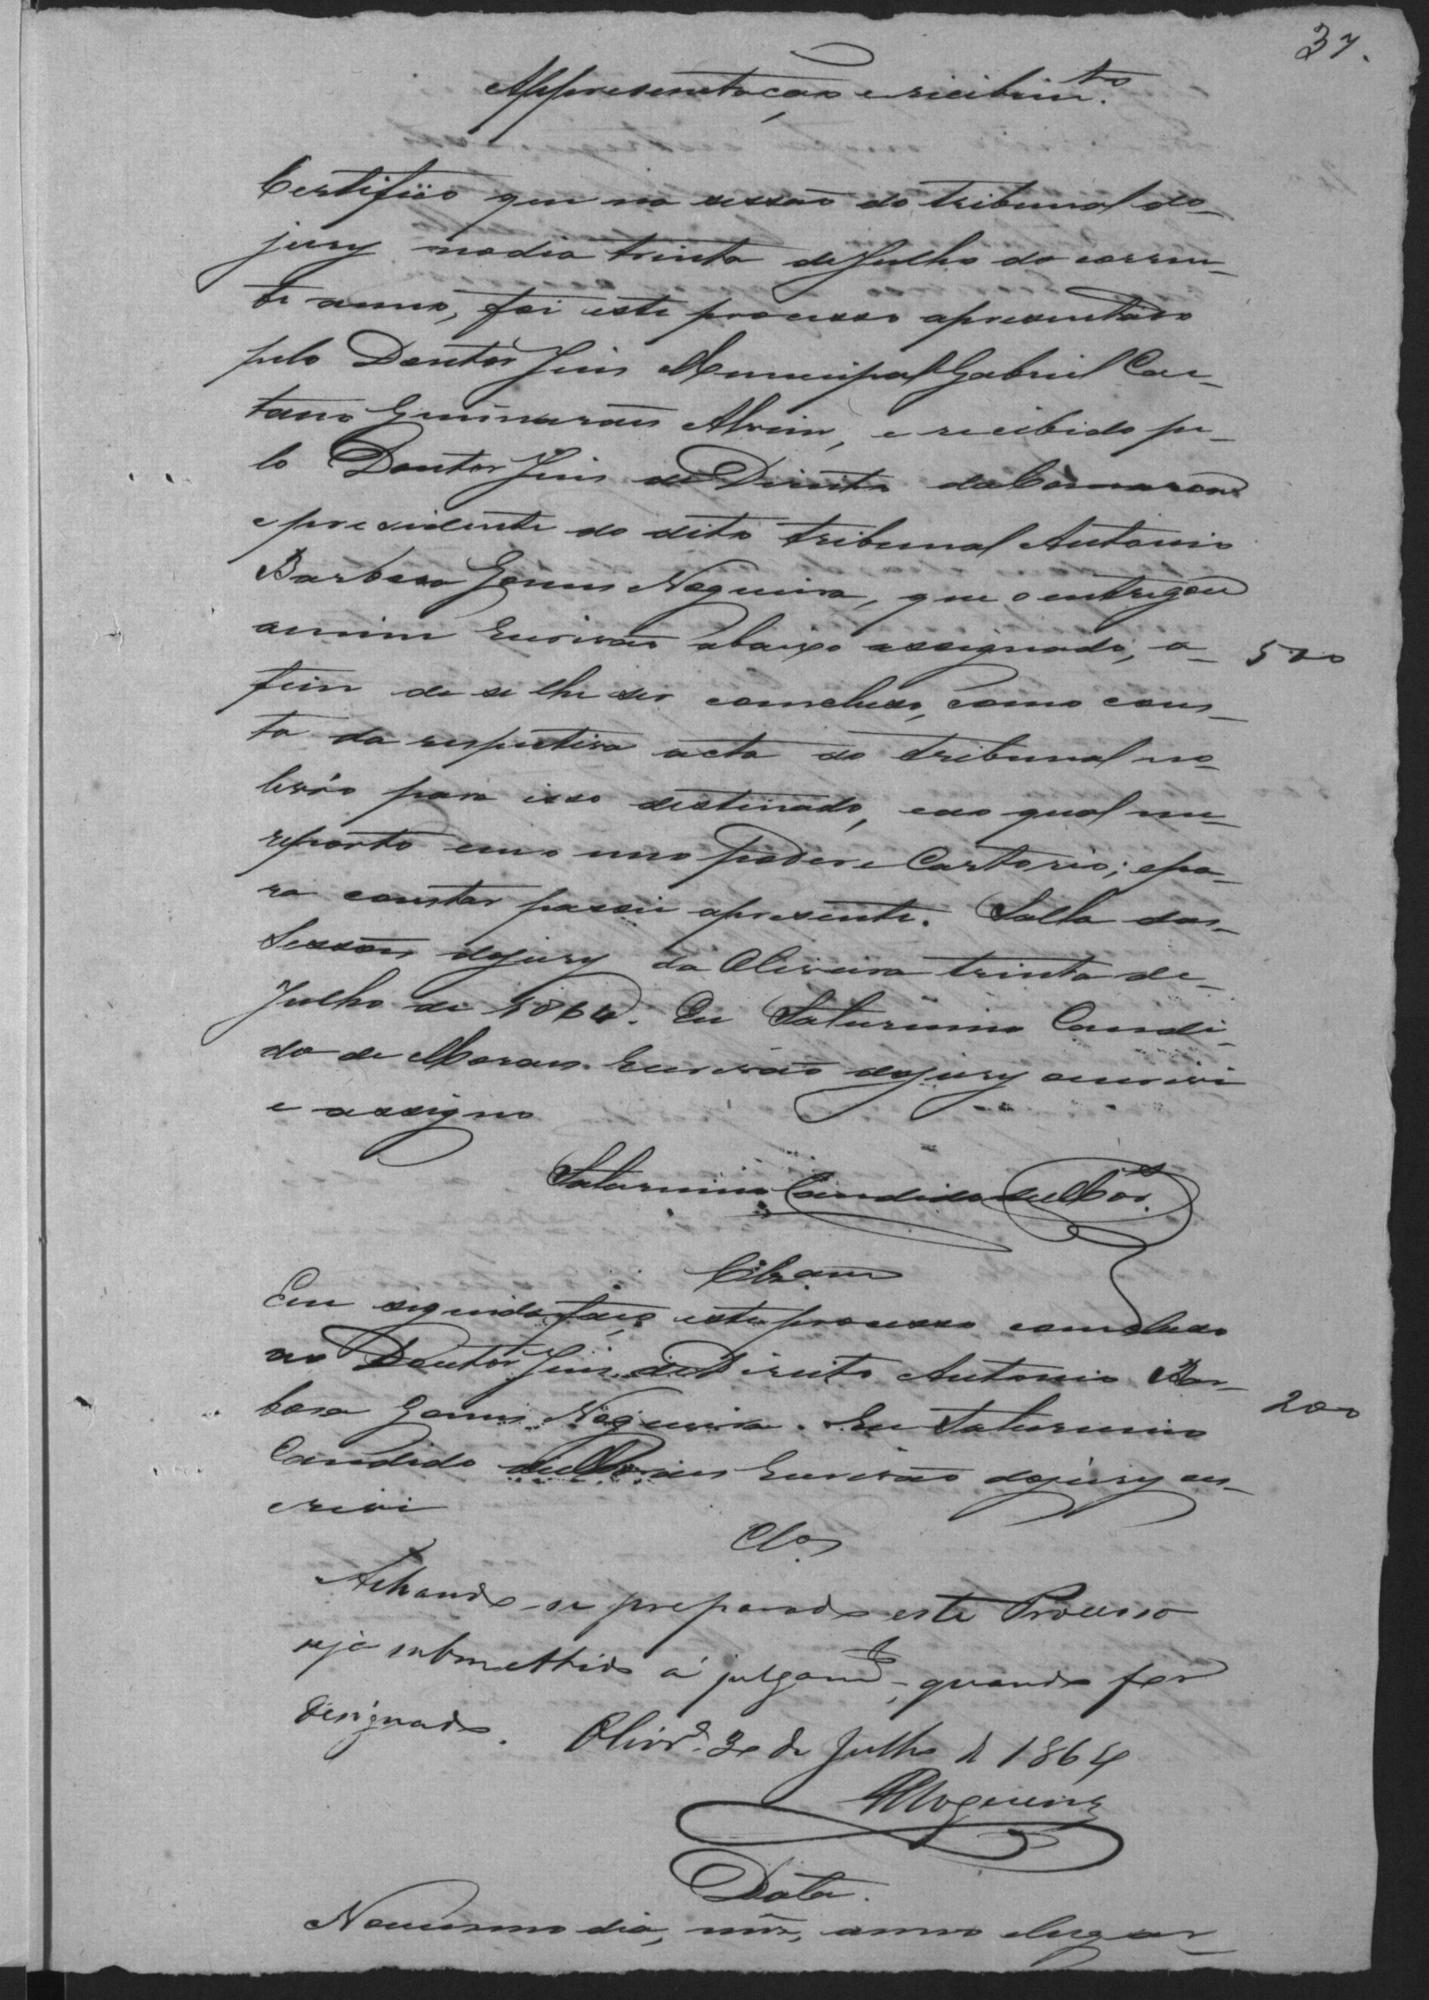 37.
Appresentação e recebim.to
Certifico que na sessão do tribunal do
jury no dia trinta de Julho do corren-
te anno, foi este processo apresentado
pelo Doutor Juis Municipal Gabriel Cae-
tano Guimarães Alvim, e recibido pe-
lo Doutor Juis de Direito da Comarca
e presidente do dito tribunal Antonio
Barbosa Gomes Nogueira, que o entregou
amim Escrivão abaixo assignado, a- 500
fim de se lhe ser concluso, como cons-
ta da respectiva acta do tribunal no
livro para isso destinado, eao qual me
reporto em meo poder e Cartorio; epa-
ra constar passei apresente. Salla das
Sessões dojury da Oliveira trinta de
Julho de 1864. Eu Saturnino Candi-
do de Moraes Escrivão dojury escrivi
e assigno
Saturnino Candido de Mor.s
Clzam
Em seguida faço este processo concluso
ao Doutor Juis de Direito Antonio Bar-
bosa Gomes Nogueira. Eu Saturnino 200
Candido de Moraes Escrivão dojury es-
crivi
Clos
Achando-se preparado este Processo
seja submettido á julgam.to, quando for
designado. Olivr.a 30 de Julho de 1864
Nogueira
Data.
Nomesmo dia, mês, anno elugar